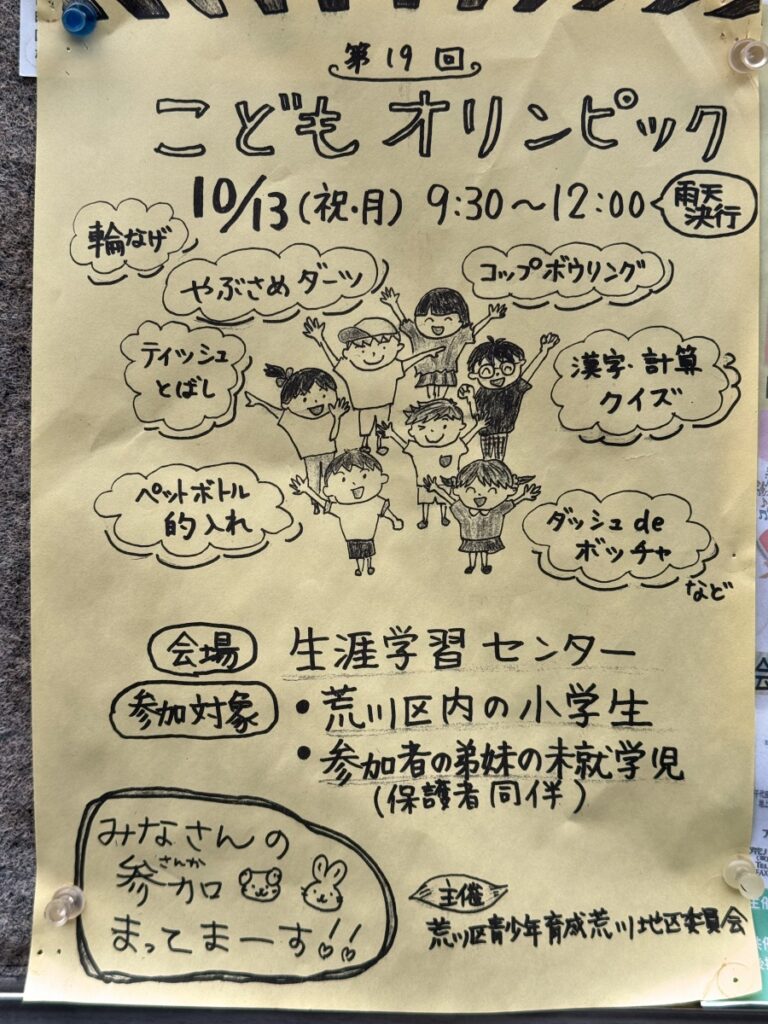 第19回
こどもオリンピック
10/13(祝・月) 9:30〜12:00
雨天
決行
輪なげ
やぶさめダーツ
コップボウリング
ティッシュ
とばし
漢字・計算
クイズ
ペットボトル
的入れ
ダッシュde
ボッチャ
など
会場 生涯学習センター
参加対象 ・荒川区内の小学生
・参加者の弟妹の未就学児
(保護者同伴)
みなさんの
さんか
参加
まってまーす!!
主催
荒川区青少年育成荒川地区委員会